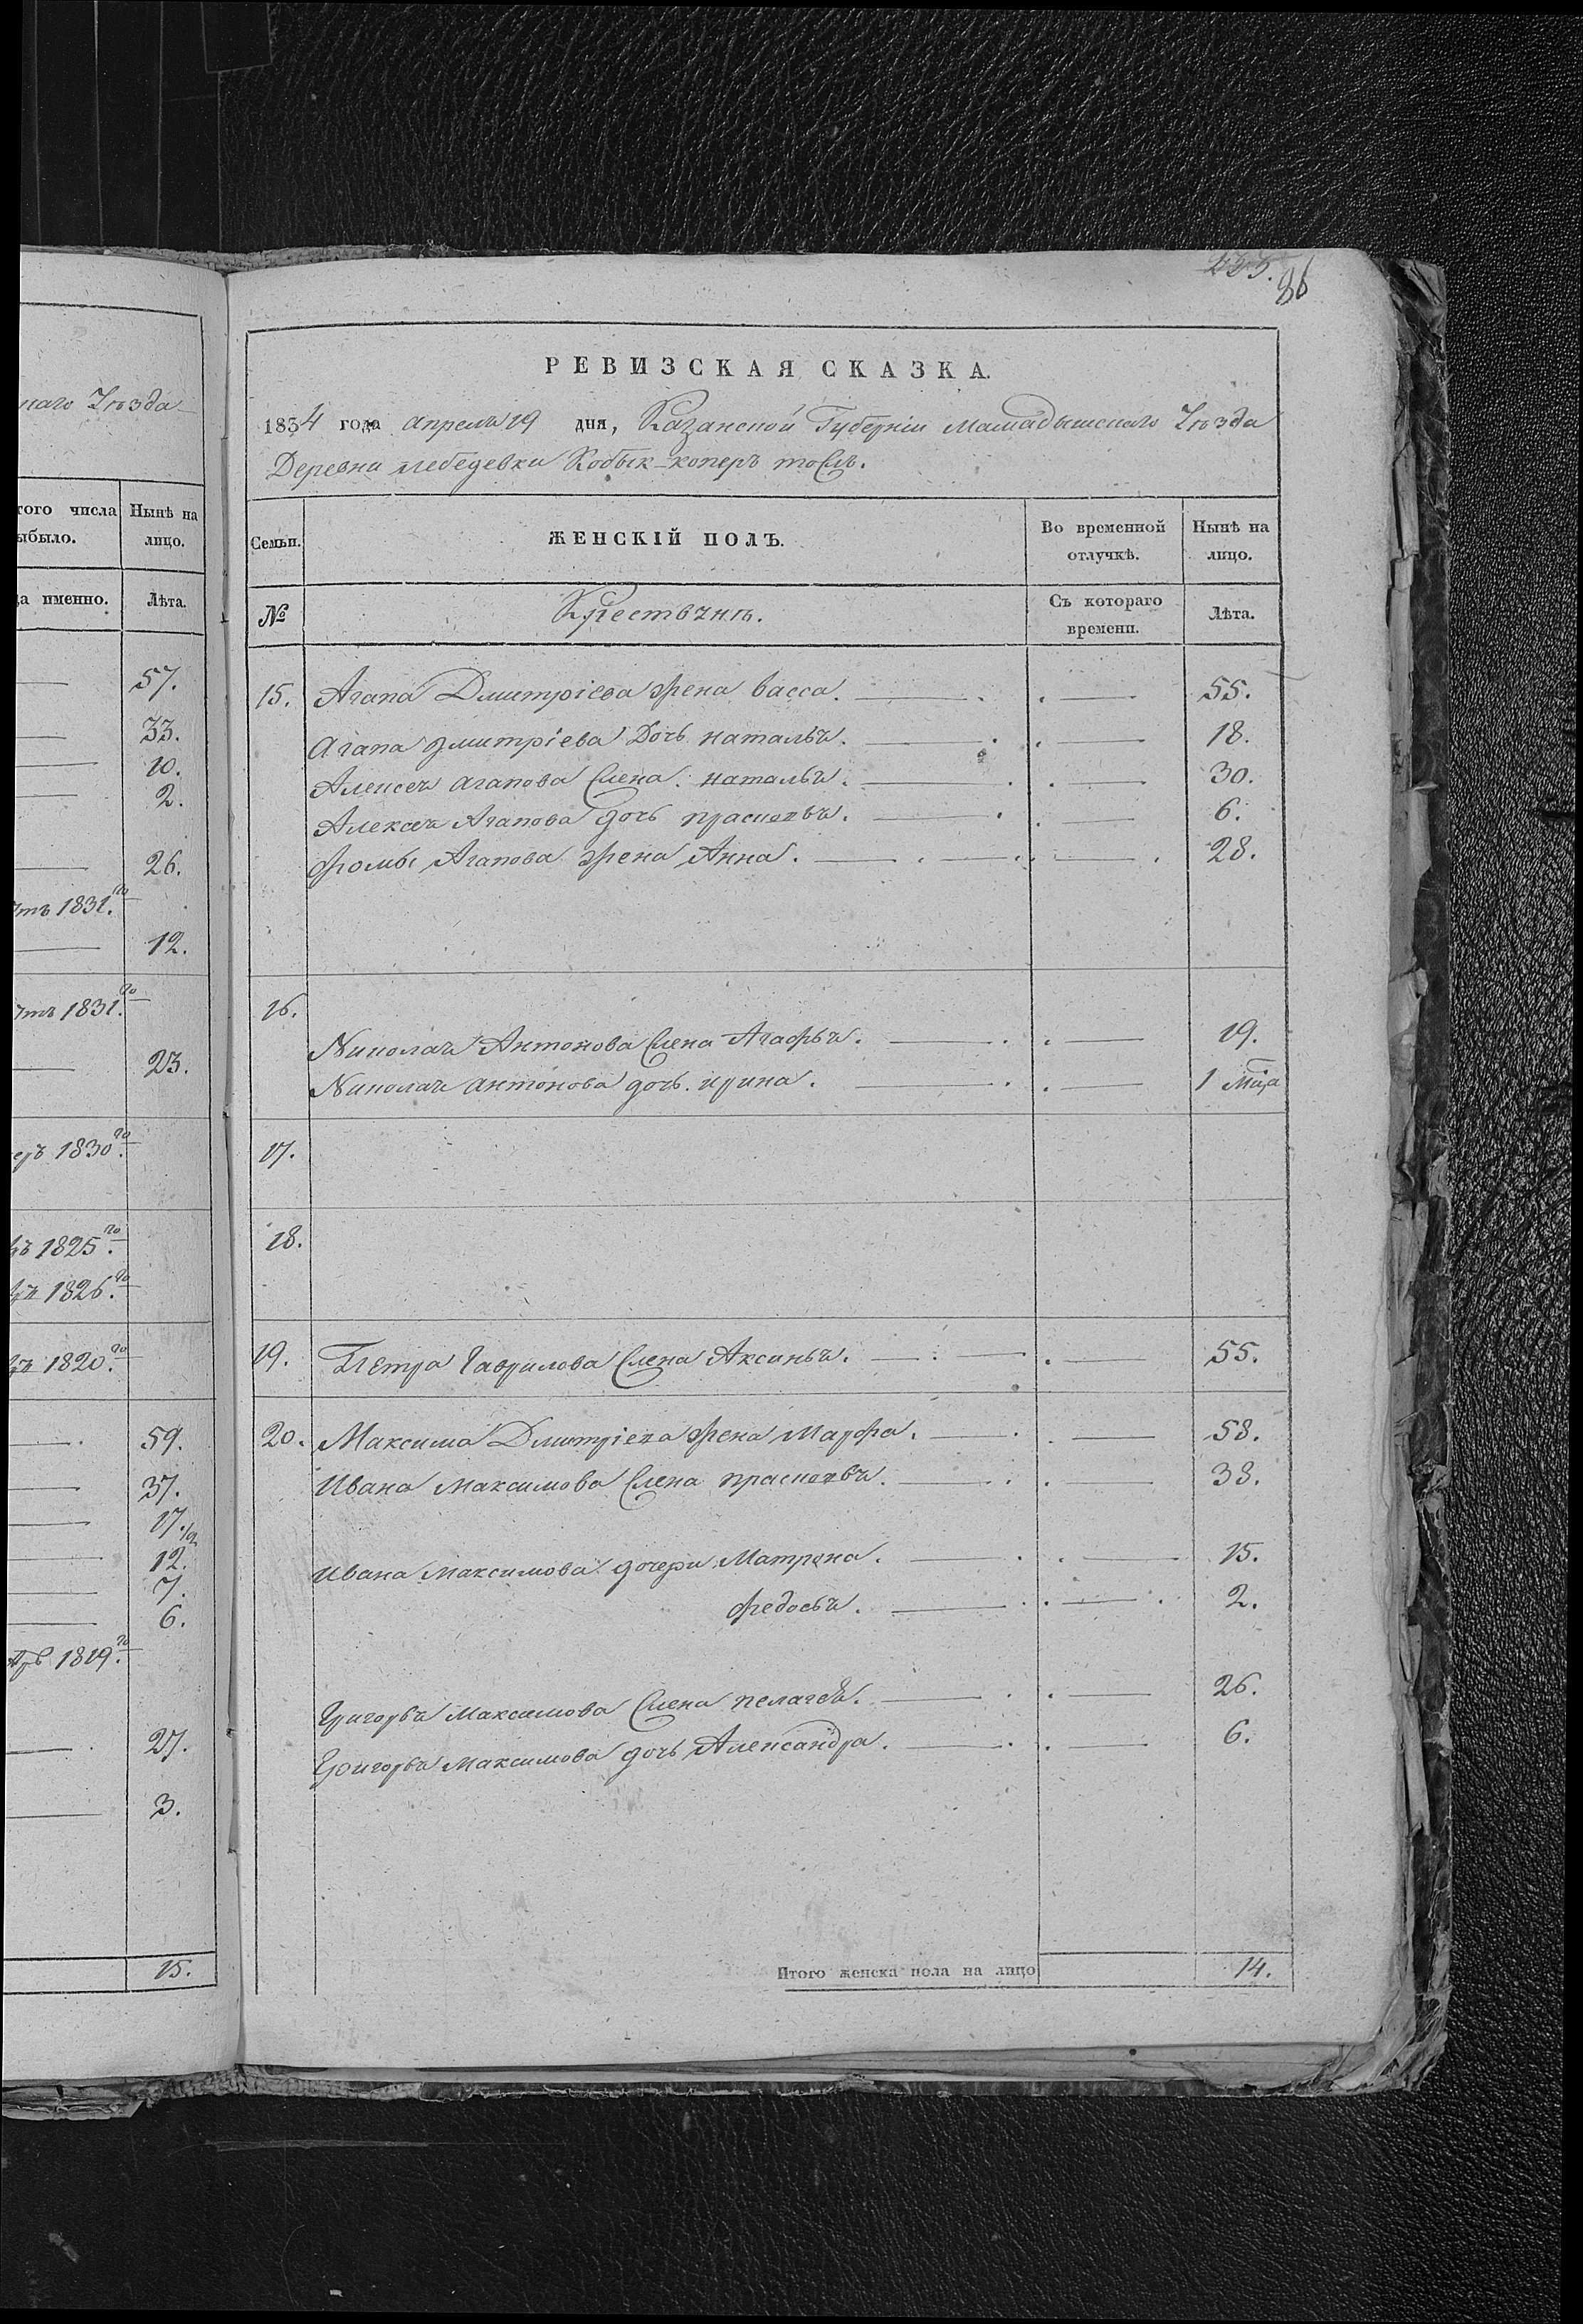 наго Уѣзда
того числа
выбыло.
Нынѣ на
лицо.
да именно.
Лѣта.
57.
33.
10.
2.
26.
1831.го
12.
1831.го
23.
1830.го
1825.го
1826.го
1820.го
59.
37.
17.1/2
12.
7.
6.
1819.го
27.
3.
15.
86
РЕВИЗСКАЯ СКАЗКА.
1834 года апреля 19 дня, Казанской Губерніи Мамадышскаго Уѣзда
Деревни лебедевки Кобык-коперъ тожъ.
Семьи.
ЖЕНСКІЙ ПОЛЪ.
Во временной
отлучкѣ.
Нынѣ на
лицо.
№
Крестьянѣ.
Съ котораго
времени.
Лѣта.
15. Агапа Дмитріева жена васса. 55.
Агапа дмитріева Дочь наталья. 18.
Алексея агапова Жена наталья. 30.
Алексея Агапова дочь прасковья. 6.
Фомы Агапова жена Анна. 28.
16.
Николая Антонова Жена Агафья. 19.
Николая антонова дочь ирина. 1 мца
17.
18.
19. Петра Гаврилова Жена Аксинья. 55.
20. Максима Дмитріева жена Марфа. 58.
Ивана максимова Жена прасковья. 38.
Ивана максимова дочери Матрена. 15.
Федосья. 2.
Григорья максимова Жена пелагея. 26.
Григорья максимова дочь Александра. 6.
Итого женска пола на лицо 14.